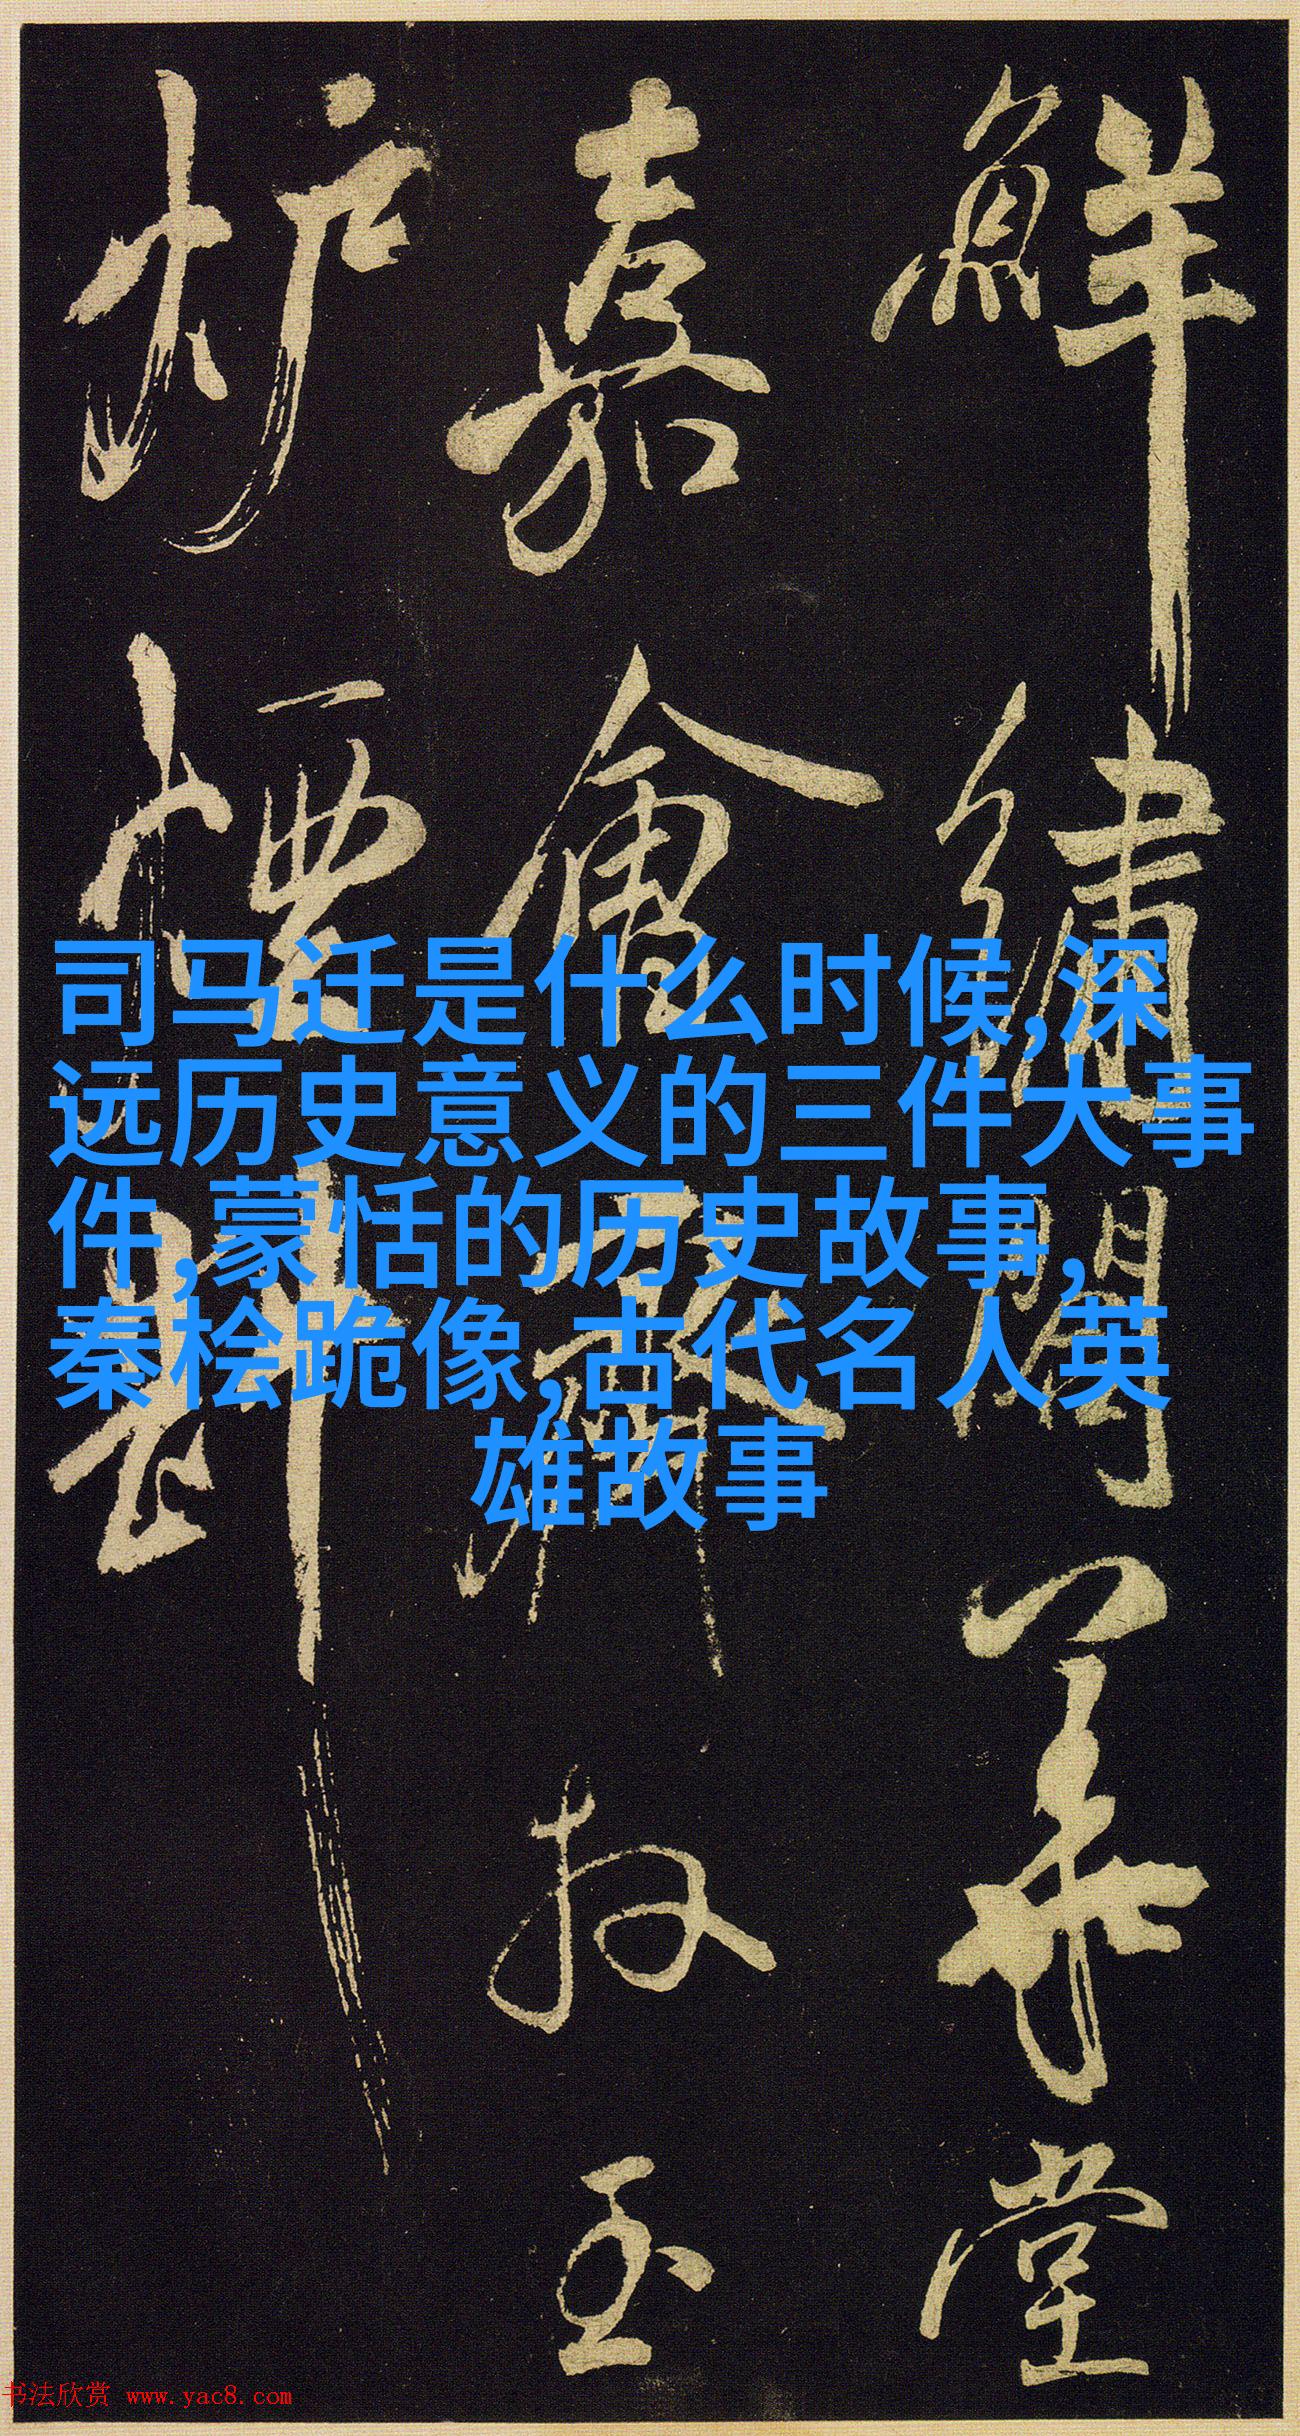 鮮繡閣一華堂
嘉會
放玉
炉煙
司马迁是什么时候,深
远历史意义的三件大事
件,蒙恬的历史故事,
秦桧跪像,古代名人英
雄故事
书法欣赏 www.yac8.com